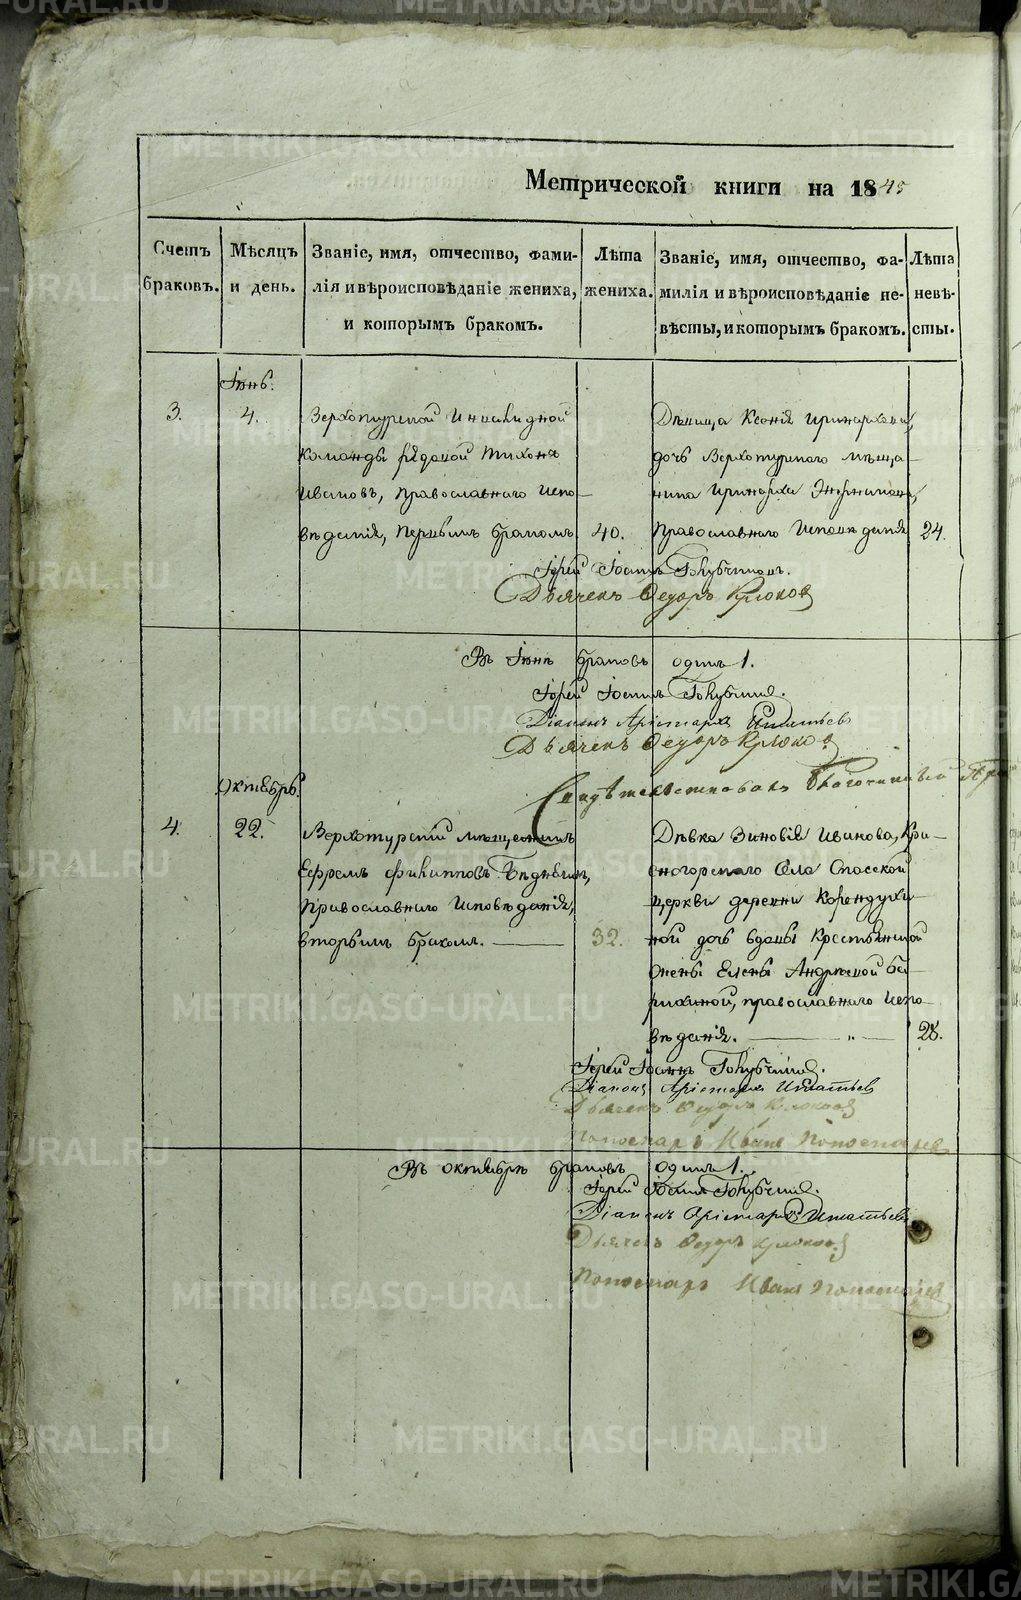 Метрической книги на 1845
Счетъ браковъ.
Мѣсяцъ и день.
Званіе, имя, отчество, фами-
лія и вѣроисповѣданіе жениха,
и которымъ бракомъ.
Лѣта жениха.
Званіе, имя, отчество, фа-
милія и вѣроисповѣданіе не-
вѣсты, и которымъ бракомъ.
Лѣта невѣ-
сты.
Іюнь.
3.
4.
Верхотурской Инвалидной
команды рядовой Тихонъ
Ивановъ, Православнаго испо-
вѣданія, первымъ бракомъ
40.
Дѣвица Ксенія Иринархова,
дочь Верхотурскаго мѣща-
нина Иринарха
Православнаго Исповѣданія
24.
Іерей Іоаннъ Голубчиковъ.
Дьячекъ Федоръ Крюковъ
Въ Іюнѣ браковъ одинъ 1.
Іерей Іоаннъ Голубчиковъ.
Діаконъ Арістархъ Игнатьевъ
Дьячекъ Федоръ Крюковъ
Свидѣтельствовалъ Благочинный
Октябрь.
4.
22.
Верхотурскій мѣщанинъ
Ефремъ Филипповъ
Православнаго Исповѣданія,
вторымъ бракомъ.
32.
Дѣвка Зиновія Иванова, Кра-
сногорскаго Села Спасской
церкви деревни
ной дочь вдовы Крестьянской
жены Елены Андреевой
православнаго Испо-
вѣданія. — „ —
28.
Іерей Іоаннъ Голубчиковъ.
Діаконъ Арістархъ Игнатьевъ
Дьячекъ Федоръ Крюковъ
Пономарь Иванъ Пономаревъ
Въ октябрѣ браковъ одинъ 1.
Іерей Іоаннъ Голубчиковъ.
Діаконъ Арістархъ Игнатьевъ
Дьячекъ Федоръ Крюковъ
Пономарь Иванъ Пономаревъ
METRIKI.GASO-URAL.RU